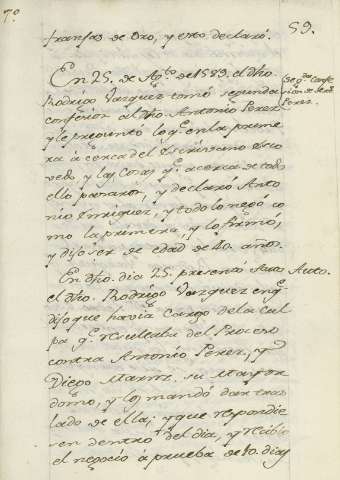 7.º
59.
franjas de Oro, y esto declaró.
En 25. de Ag.to de 1589. el dho.
Rodrigo Vazquez tomó segunda
confesion al dho. Antonio Perez
y le preguntó lo q.e en la prime
ra á cerca del Escrivano Esco
vedo, y las cosas q.e acerca de todo
ello pasaron, y declaró Anto
nio Enriquez, y todo lo negó co
mo la primera, y lo firmó,
y dijo ser de edad de 40. años.
Seg.da Confe
sion de
Perez
En dho. dia 25. presentó
Auto.
el dho. Rodrigo Vazquez en q.e
dijo que havia Cargo de la Cul
pa q.e resultaba del Proceso
contra Antonio Perez, y
Diego Martz. su Mayor
domo, y los mandó dar tras
lado de ella; y que respondie
sen dentro del dia, y recibio
el negocio á prueba de 10. dias